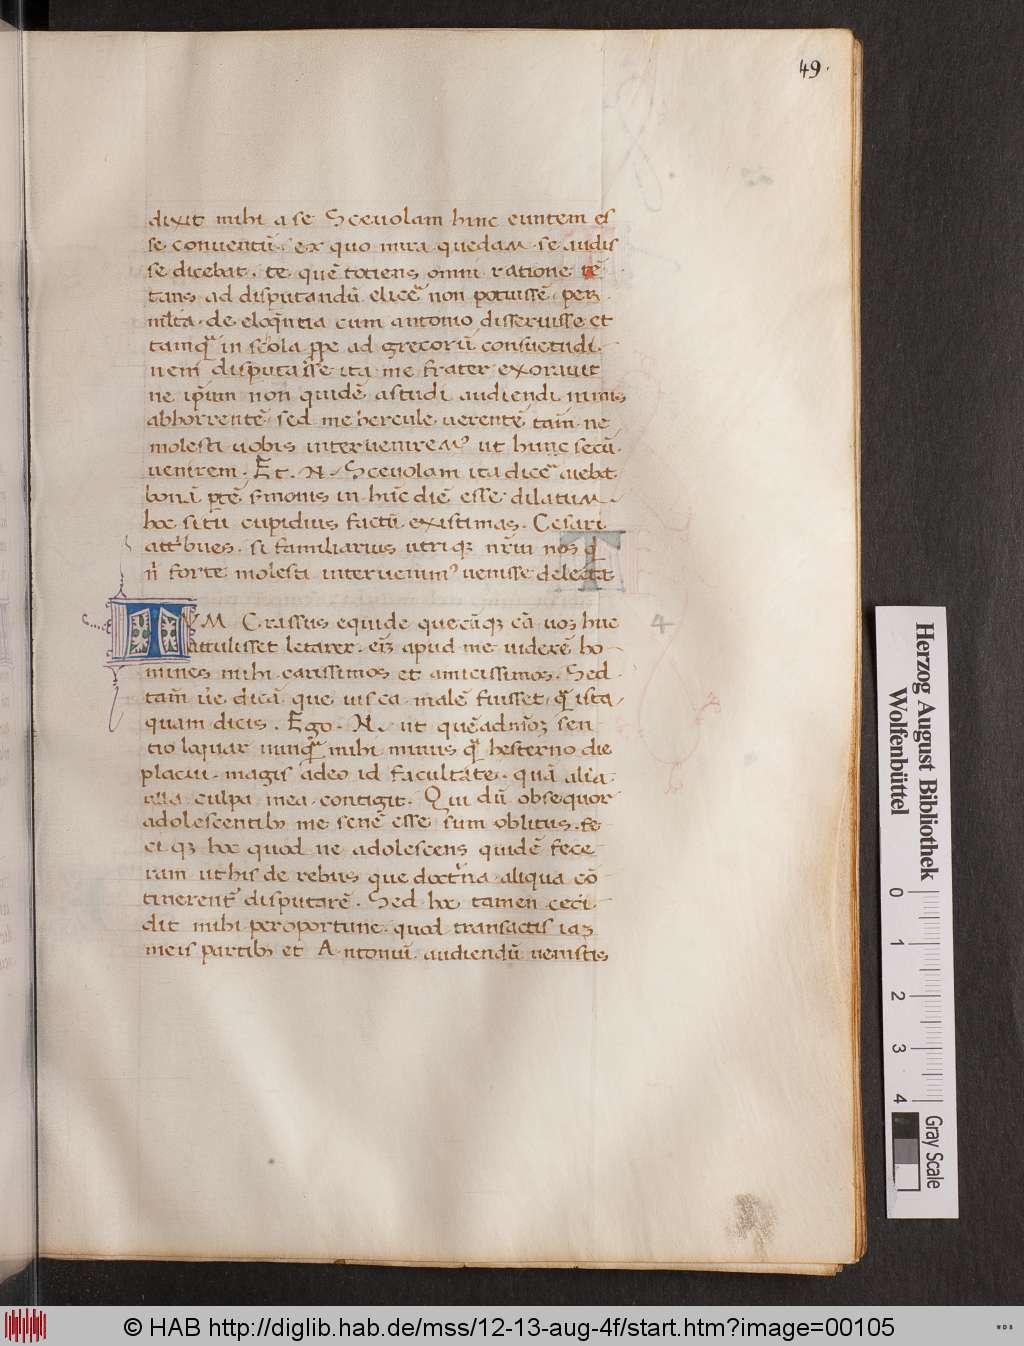 49.
dixit mihi a se Sceuolam hinc euntem es
se conuentū. ex quo mira quedam se audis
se dicebat. te quē totiens omni ratione tē
tans ad disputandū elicē non potuissē perꝫ
mlta de eloq̄ntia cum antonio disseruisse et
tamq̄ in scola ꝓpe ad grecorū consuetudi.
nem disputaisse ita me frater exorauit
ne ip̄ium non quidē a studi audiendi nimis
abhorrentē sed me hercule uerentē tam̄ ne
molesti uobis interuenirem⁹ ut hunc secū.
uenirem. Et. N. Sceuolam ita dicē aiebat
bonā ptē smonis in hūc diē esse dilatum.
hoc si tu cupidius factū existimas. Cesari
attbues. si familiarius utriqꝫ nr̄m nos q̄
n̄ forte molesti interuenim⁹ uenisse delectat
TVM Crassus equide quecūqꝫ cā uos huc
attulisset letarer. cū apud me viderē ho
mines mihi carissimos et amicissimos. Sed
tam̄ ūe dicā. que uis ea malē fuisset q̄ ista
quam dicis. Ego. N. ut quēadmoꝫ sen
tio loquar nunq̄ mihi minus q̄ hesterno die
placui. magis adeo id facultate. quā alia
ulla culpa mea contigit. Qui dū obsequor
adolescentibꝫ me senē esse sum oblitus. fe
ci qꝫ hoc quod ne adolescens quidē fece
ram ut his de rebus que doctna aliqua cō
tinerent disputarē. Sed hoc tamen ceci
dit mihi peroportune. quod transactis iaꝫ
meis partibꝫ et Antoniū. audiendū uenistis
4
Herzog August Bibliothek
Wolfenbüttel
0 1 2 3 4
Gray Scale
© HAB http://diglib.hab.de/mss/12-13-aug-4f/start.htm?image=00105
WDB